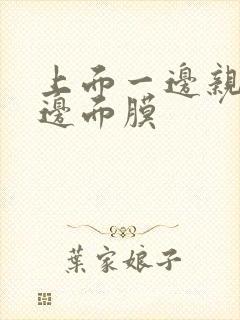 上面一邊親
邊面膜
葉家娘子